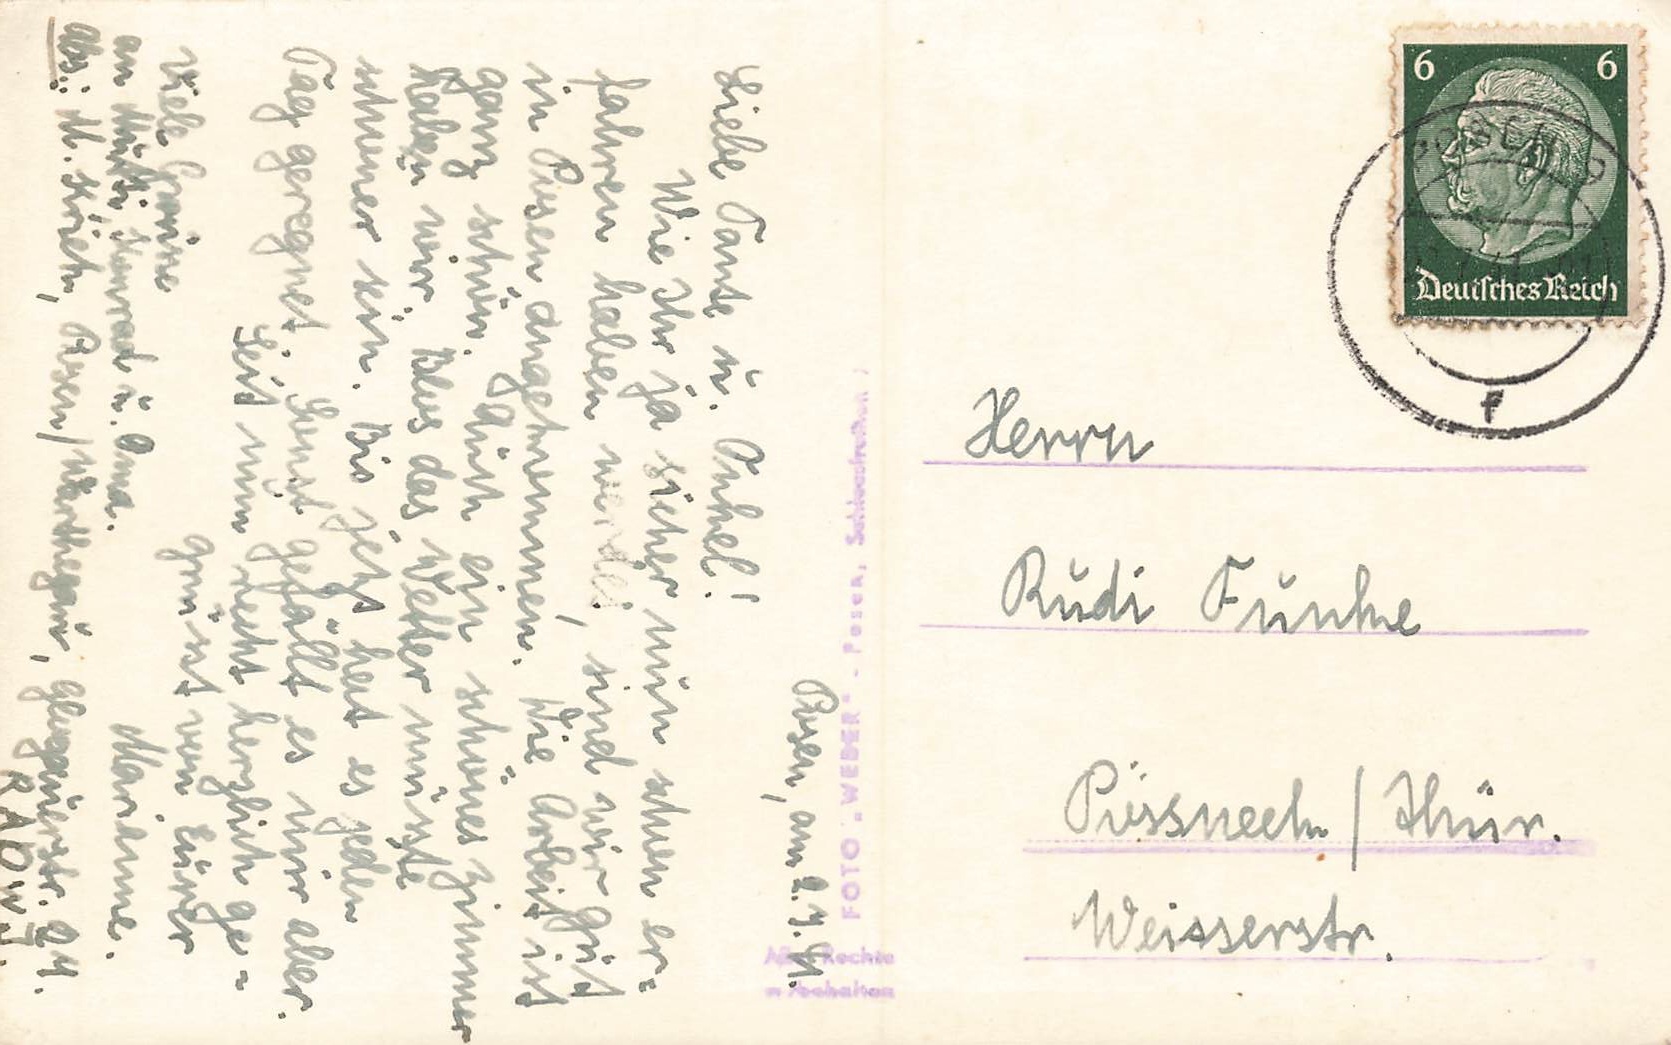 Posen, am 2.4.41.
Liebe Tante u. Onkel!
Wie Ihr ja sicher nun schon er-
fahren haben werdet, sind wir gut
in Posen angekommen. Die Arbeit ist
ganz schön. Auch ein schönes Zimmer
haben wir. Blos das Wetter müsste
schöner sein. Bis jetzt hat es jeden
Tag geregnet. Sonst gefällt es mir aber.
Seid nun recht herzlich ge-
grüsst von Eurer
Marianne.
Viele Grüsse
an Mutti, Konrad u. Oma.
Abs.: M. Krich, Posen/Warthegau, Glogauerstr. 94.
R.A.D.w.J.
FOTO „WEBER" - Posen, Schlossfreiheit
Alle Rechte
vorbehalten
6 6
Deutsches Reich
POSEN 9
f
Herrn
Rudi Funke
Pössneck / Thür.
Weisserstr.